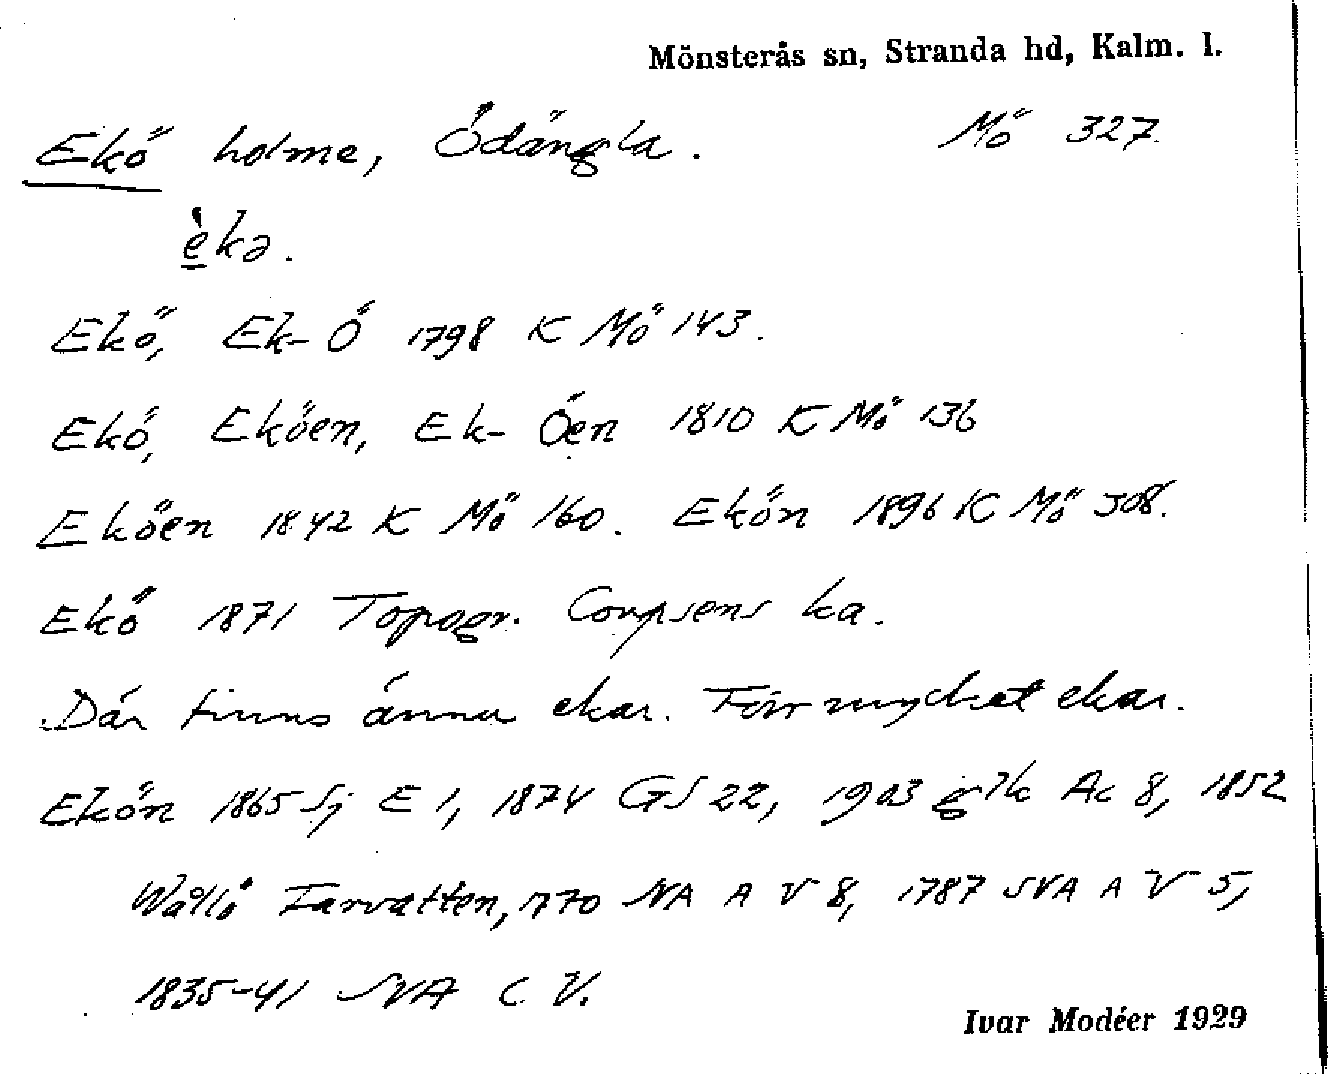 Mönsterås sn, Stranda hd, Kalm. l.
Ekö holme, Ödängla. Mö 327.
èkə.
Ekö, Ek-Ö 1798 K Mö 143.
Ekö, Eköen, Ek-Öen 1810 K Mö 136
Eköen 1842 K Mö 160. Ekön 1896 K Mö 308.
Ekö 1871 Topogr. Corpsens ka.
Där finns ännu ekar. Förr mycket ekar.
Ekön 1865 Sj E 1, 1874 GS 22, 1903 glk Ac 8, 1852
Wållö Farvatten, 1770 SVA A V 8, 1787 SVA A V 5,
1835-41 SVA C V.
Ivar Modéer 1929